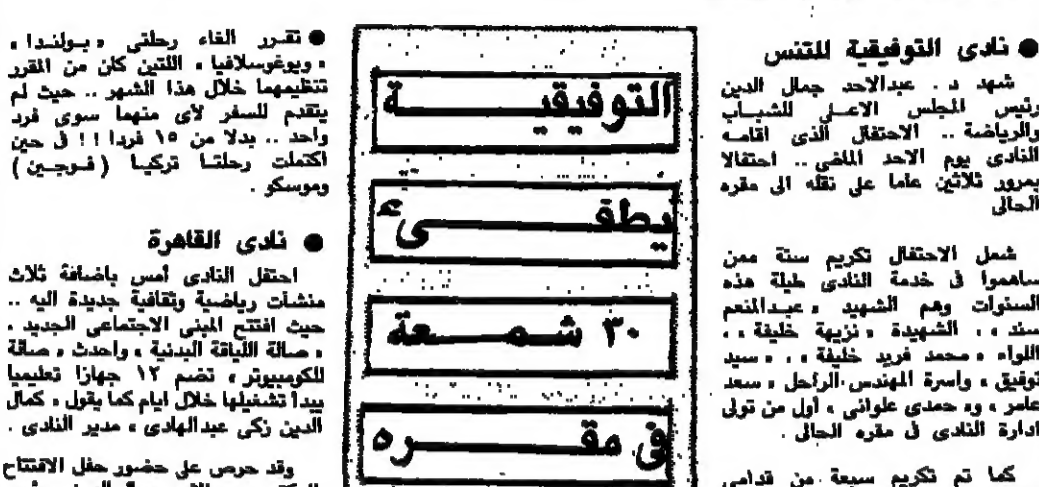 ● نادى التوفيقية للتنس
شهد د . عبدالاحد جمال الدين
رئيس المجلس الاعلى للشباب
والرياضة .. الاحتفال الذى اقامه
النادى يوم الاحد الماضى .. احتفالا
بمرور ثلاثين عاما على نقله الى مقره
الحالى
شمل الاحتفال تكريم ستة ممن
ساهموا فى خدمة النادى طيلة هذه
السنوات وهم الشهيد « عبدالمنعم
سند » ، الشهيدة « نزيهة خليفة » ،
اللواء « محمد فريد خليفة » ، « سيد
توفيق » واسرة المهندس الراحل « سعد
عامر » و« حمدى علوانى » اول من تولى
ادارة النادى فى مقره الحالى .
كما تم تكريم سبعة من قدامى
التوفيقية
يطفىء
٣٠ شمعة
فى مقره
● تقرر الغاء رحلتى « بولندا »
« ويوغوسلافيا » اللتين كان من المقرر
تنظيمهما خلال هذا الشهر .. حيث لم
يتقدم للسفر لأى منهما سوى فرد
واحد .. بدلا من ١٥ فردا !! فى حين
اكتملت رحلتا تركيا ( فوجين )
وموسكو .
● نادى القاهرة
احتفل النادى أمس باضافة ثلاث
منشآت رياضية وثقافية جديدة اليه ..
حيث افتتح المبنى الاجتماعى الجديد ،
« صالة اللياقة البدنية » واحدث « صالة
للكومبيوتر » تضم ١٢ جهازا تعليميا
يبدأ تشغيلها خلال ايام كما يقول « كمال
الدين زكى عبدالهادى » مدير النادى .
وقد حرص على حضور حفل الافتتاح